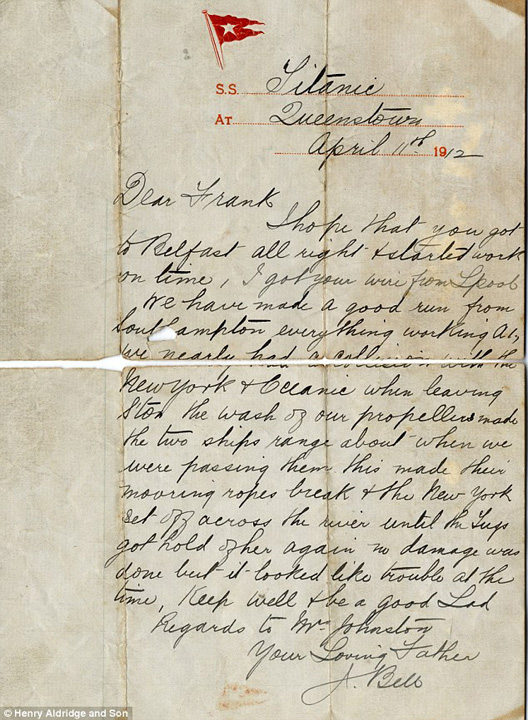 S.S. Titanic
At Queenstown
April 11th 1912
Dear Frank
I hope that you got
to Belfast all right & started work
on time, I got your wire from Lpool
We have made a good run from
Southampton everything working A1,
we nearly had a collision with the
New York & Oceanic when leaving
Ston the wash of our propellers made
the two ships range about when we
were passing them this made their
mooring ropes break & the New York
set off across the river until the Tugs
got hold of her again no damage was
done but it looked like trouble at the
time, Keep well & be a good Lad
Regards to Mr Johnston
Your Loving Father
J. Bell
© Henry Aldridge and Son